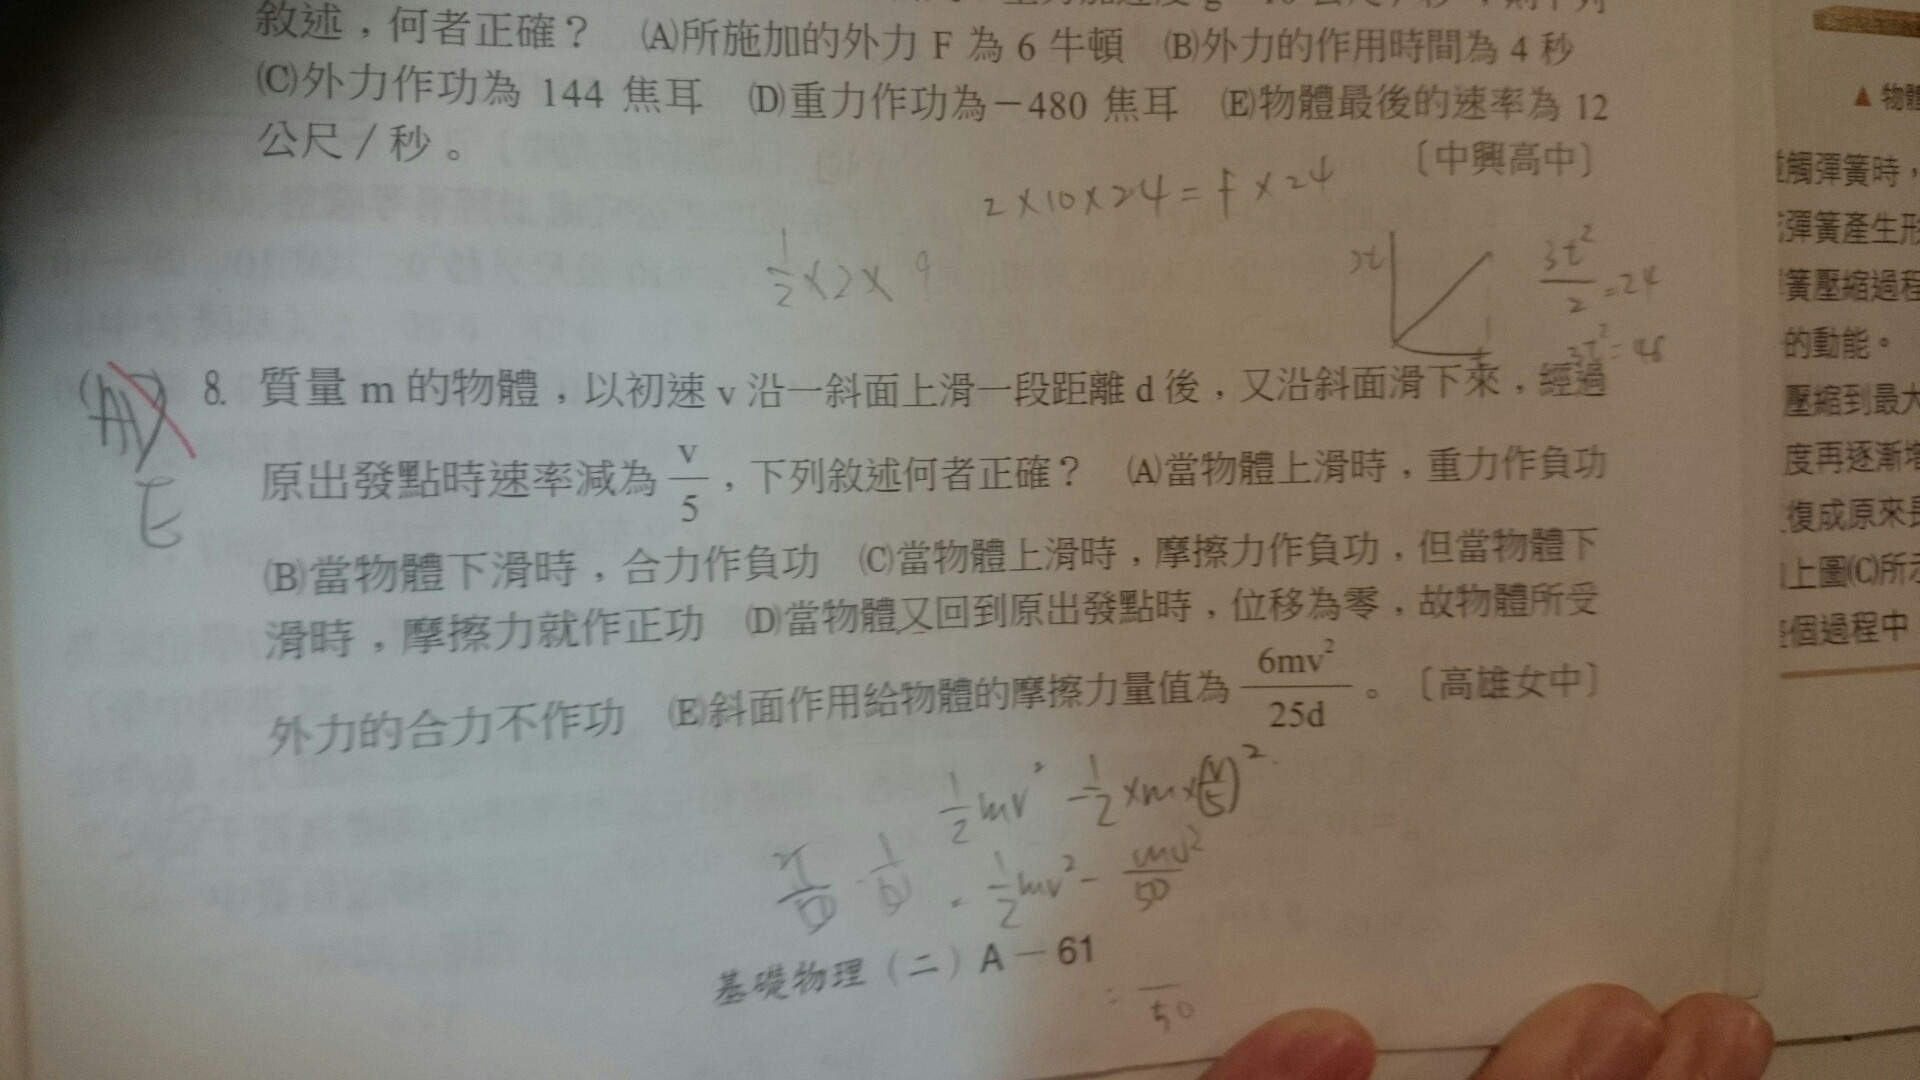 敘述，何者正確？ (A)所施加的外力 F 為 6 牛頓 (B)外力的作用時間為 4 秒
(C)外力作功為 144 焦耳 (D)重力作功為－480 焦耳 (E)物體最後的速率為 12
公尺／秒。
〔中興高中〕
2×10×24=f×24
1/2×2×9
3t
t
3t²/2=24
3t²=48
(A)
E
8. 質量 m 的物體，以初速 v 沿一斜面上滑一段距離 d 後，又沿斜面滑下來，經過
原出發點時速率減為 v/5，下列敘述何者正確？ (A)當物體上滑時，重力作負功
(B)當物體下滑時，合力作負功 (C)當物體上滑時，摩擦力作負功，但當物體下
滑時，摩擦力就作正功 (D)當物體又回到原出發點時，位移為零，故物體所受
外力的合力不作功 (E)斜面作用給物體的摩擦力量值為 6mv²/25d。〔高雄女中〕
1/2mv²－1/2×m×(v/5)²
=1/2mv²－mv²/50
基礎物理（二）A－61
50
▲ 物體
觸彈簧時，
彈簧產生形
簧壓縮過程
的動能。
壓縮到最大
度再逐漸增
復成原來長
上圖(C)所示
個過程中